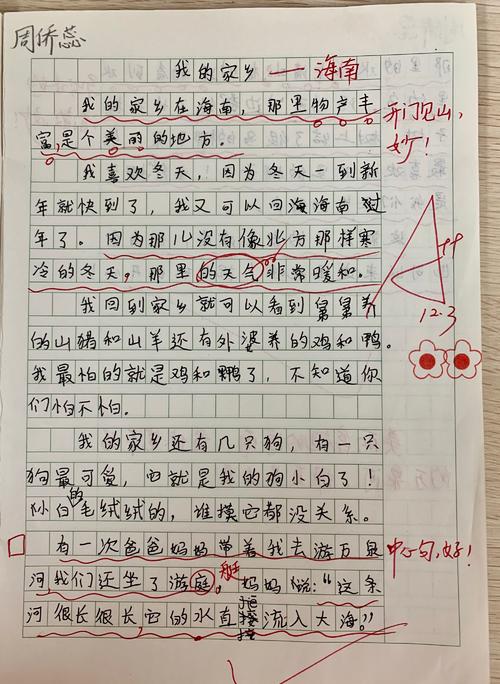 周侨蕊
我的家乡 —— 海南
我的家乡在海南，那里物产丰
富，是个美丽的地方。
开门见山，
妙！
我喜欢冬天，因为冬天一到新
年就快到了，我又可以回海海南过
年了。因为那儿没有像北方那样寒
冷的冬天，那里的天气非常暖和。
12.3
我回到家乡就可以看到舅舅养
的山猪和山羊还有外婆养的鸡和鸭。
我最怕的就是鸡和鸭了，不知道你
们怕不怕。
我的家乡还有几只狗，有一只
狗最可爱，它就是我的狗小白了！
小白的毛绒绒的，谁摸它都没关系。
有一次爸爸妈妈带着我去游万泉
中心句，好！
河，我们还坐了游庭艇。妈妈说：“这条
河很长很长，它的水直接流入大海。”